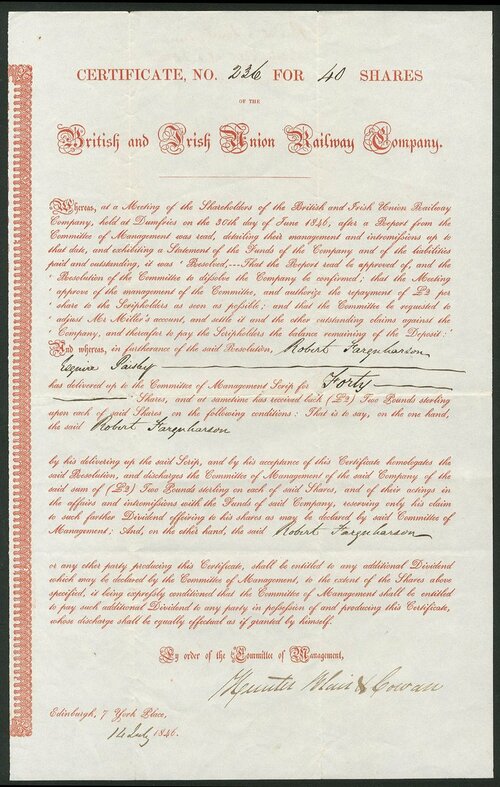 CERTIFICATE, NO. 236 FOR 40 SHARES
OF THE
British and Irish Union Railway Company.
Whereas, at a Meeting of the Shareholders of the British and Irish Union Railway
Company, held at Dumfries on the 30th day of June 1846, after a Report from the
Committee of Management was read, detailing their management and intromissions up to
that date, and exhibiting a Statement of the Funds of the Company and of the liabilities
paid and outstanding, it was 'Resolved,---That the Report read be approved of, and the
'Resolution of the Committee to dissolve the Company be confirmed; that the Meeting
'approve of the management of the Committee, and authorize the repayment of £2 per
'share to the Scripholders as soon as possible; and that the Committee be requested to
'adjust Mr Miller's account, and settle it and the other outstanding claims against the
'Company, and thereafter to pay the Scripholders the balance remaining of the Deposit:'
And whereas, in furtherance of the said Resolution, Robert Farquharson
Esquire Paisley
has delivered up to the Committee of Management Scrip for Forty
Shares, and at sametime has received back (£2) Two Pounds sterling
upon each of said Shares, on the following conditions: That is to say, on the one hand,
the said Robert Farquharson
by his delivering up the said Scrip, and by his acceptance of this Certificate homologates the
said Resolution, and discharges the Committee of Management of the said Company of the
said sum of (£2) Two Pounds sterling on each of said Shares, and of their actings in
the affairs and intromissions with the Funds of said Company, reserving only his claim
to such further Dividend effeiring to his shares as may be declared by said Committee of
Management; And, on the other hand, the said Robert Farquharson
or any other party producing this Certificate, shall be entitled to any additional Dividend
which may be declared by the Committee of Management, to the extent of the Shares above
specified, it being expressly conditioned that the Committee of Management shall be entitled
to pay such additional Dividend to any party in possession of and producing this Certificate,
whose discharge shall be equally effectual as if granted by himself.
By order of the Committee of Management,
Hunter Blair & Cowan
Edinburgh, 7 York Place,
14 July 1846.